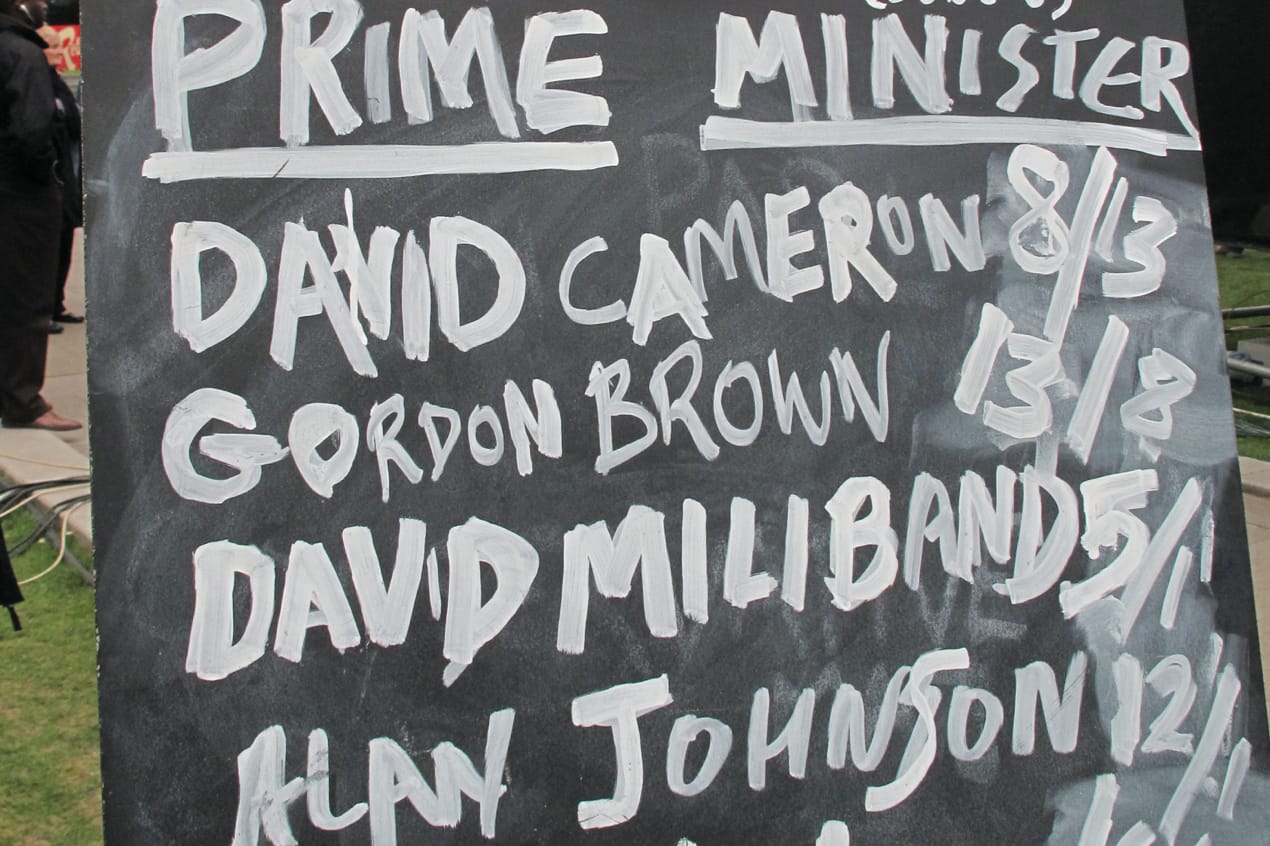 PRIME MINISTER
DAVID CAMERON 8/13
GORDON BROWN 13/8
DAVID MILIBAND 5/1
ALAN JOHNSON 12/1